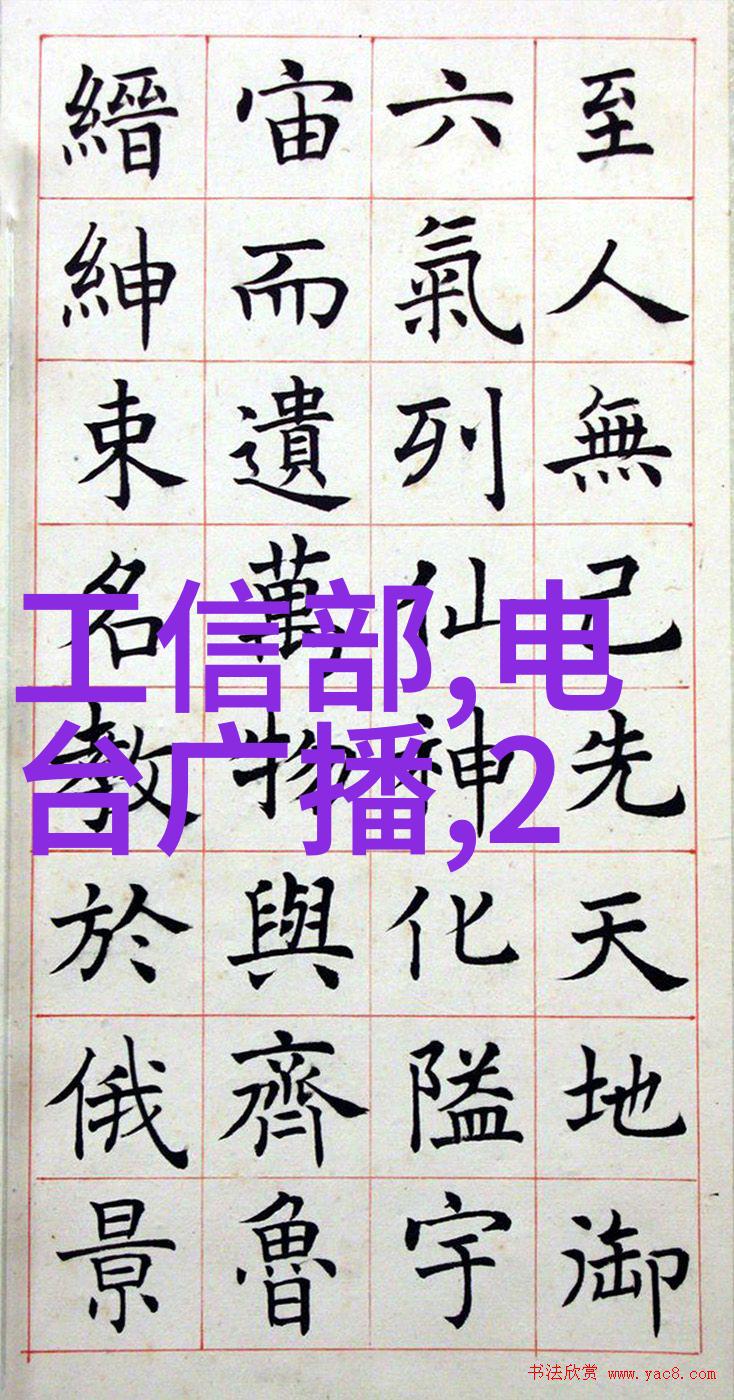 至人無己先天地御
六氣列仙神化隘宇
宙而遺萬物與齊魯
縉紳束名教於俄景
工信部,电
台广播,2
书法欣赏 www.yac8.com